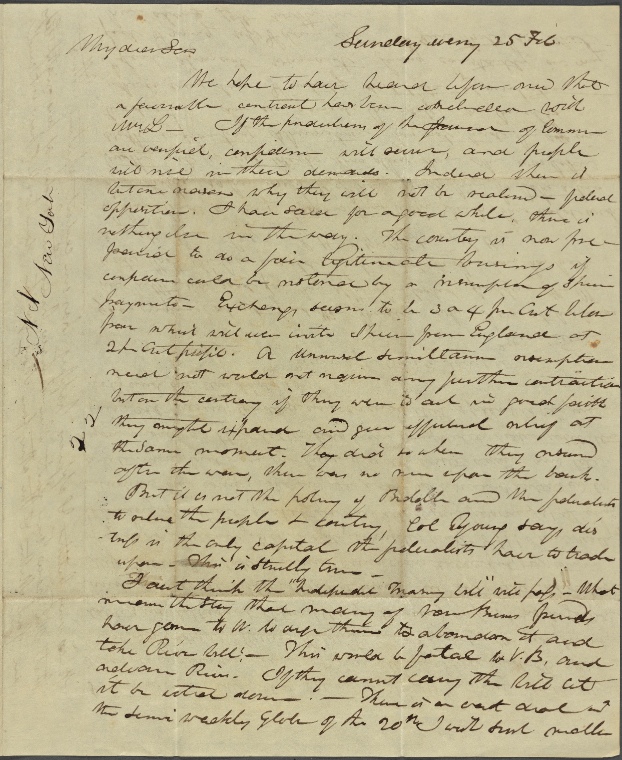 My dear Son
Sunday eveng 25 Feb
We hope to have heard before now that
a favorable contract has been concluded with
Mr L — If the predictions of the of Comm
are verified, confidence will secure, and people
will rise in their demands. Indeed there is
but one reason why they will not be realised — federal
opposition. I have said for a good while, there is
nothing else in the way. The country is now pre-
pared to do a fair legitimate business if
confidence could be restored by a resumption of Specie
payments — Exchange seems to be 3 a 4 per Cent below
par which will even invite Specie from England at
2 pr Cent profit. A universal simultaneous resumption
need not would not require any further contraction
but on the contrary if they were to act in good faith
they might expand and give effectual relief at
the same moment. They did so when they resumed
after the war, there was no run upon the banks.
But it is not the policy of Biddle and the federalists
to relieve the people & country, Col Young says dis
tress is the only capital the federalists have to trade
upon — This is strictly true —
I dont think the "Independt Treasury bill" will pass — What
means the story that many of Van Burens friends
have gone to W. to urge them to abandon it and
take Rives bill? — This would be fatal to V.B. and
advance Rives. If they cannot carry the bill let
it be voted down! — There is a vast deal in
the semi weekly Globe of the 20th I wish such matter
New York
22